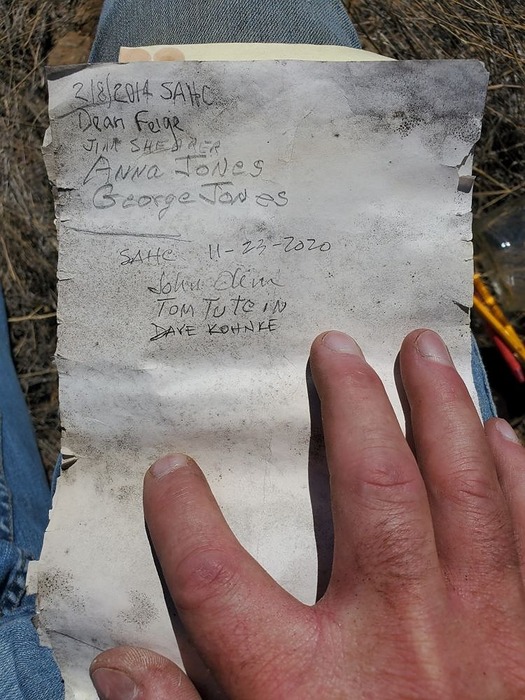 3/8/2014 SAHC
Dean Feige
JIM SHEDRER
ANNA JONES
George Jones
SAHC 11-23-2020
John
TOM TUTEIN
DAVE KOHNKE